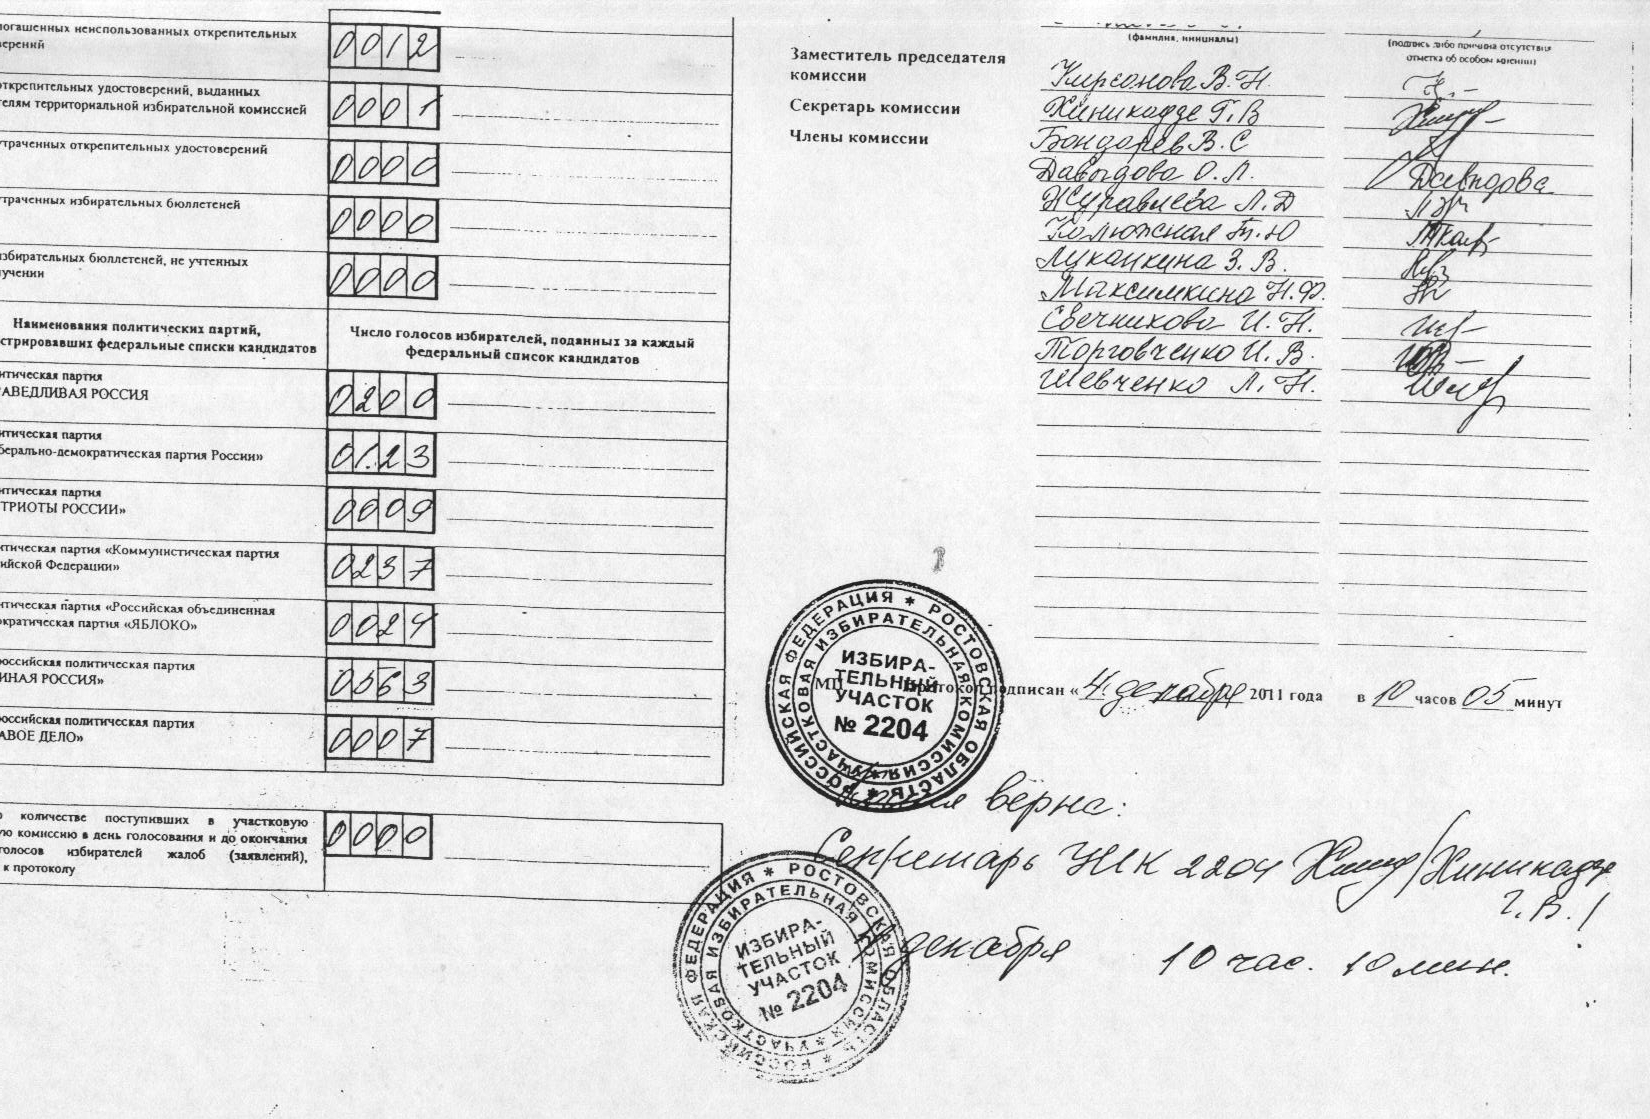 погашенных неиспользованных открепительных
верений
0012
открепительных удостоверений, выданных
телям территориальной избирательной комиссией
0001
утраченных открепительных удостоверений
0000
утраченных избирательных бюллетеней
0000
избирательных бюллетеней, не учтенных
лучении
0000
Наименования политических партий,
стрировавших федеральные списки кандидатов
Число голосов избирателей, поданных за каждый
федеральный список кандидатов
итическая партия
РАВЕДЛИВАЯ РОССИЯ
0200
итическая партия
берально-демократическая партия России»
0123
итическая партия
ТРИОТЫ РОССИИ»
0009
итическая партия «Коммунистическая партия
ийской Федерации»
0237
итическая партия «Российская объединенная
ократическая партия «ЯБЛОКО»
0024
российская политическая партия
ИНАЯ РОССИЯ»
0563
российская политическая партия
АВОЕ ДЕЛО»
0007
о количестве поступивших в участковую
ую комиссию в день голосования и до окончания
голосов избирателей жалоб (заявлений),
к протоколу
0000
(фамилия, инициалы)
(подпись либо причина отсутствия
отметка об особом мнении)
Заместитель председателя
комиссии
Кирсонова В.Н.
Секретарь комиссии
Хиникадзе Г.В
Члены комиссии
Бондарев В.С
Давыдова О.Л.
Давыдова
Журавлева Л.Д
Калюжная Т.Ю
Луканкина З.В.
Максимкина Н.Ф.
Свечникова И.Н.
Торговченко И.В.
Шевченко Л.Н.
МП Протокол подписан «4» декабря 2011 года в 10 часов 05 минут
РОССИЙСКАЯ ФЕДЕРАЦИЯ * РОСТОВСКАЯ ОБЛАСТЬ *
УЧАСТКОВАЯ ИЗБИРАТЕЛЬНАЯ КОМИССИЯ *
ИЗБИРА-
ТЕЛЬНЫЙ
УЧАСТОК
№ 2204
Копия верна:
Секретарь УИК 2204 /Хиникадзе
Г.В./
4 декабря 10 час. 10 мин.
РОССИЙСКАЯ ФЕДЕРАЦИЯ * РОСТОВСКАЯ ОБЛАСТЬ *
УЧАСТКОВАЯ ИЗБИРАТЕЛЬНАЯ КОМИССИЯ *
ИЗБИРА-
ТЕЛЬНЫЙ
УЧАСТОК
№ 2204